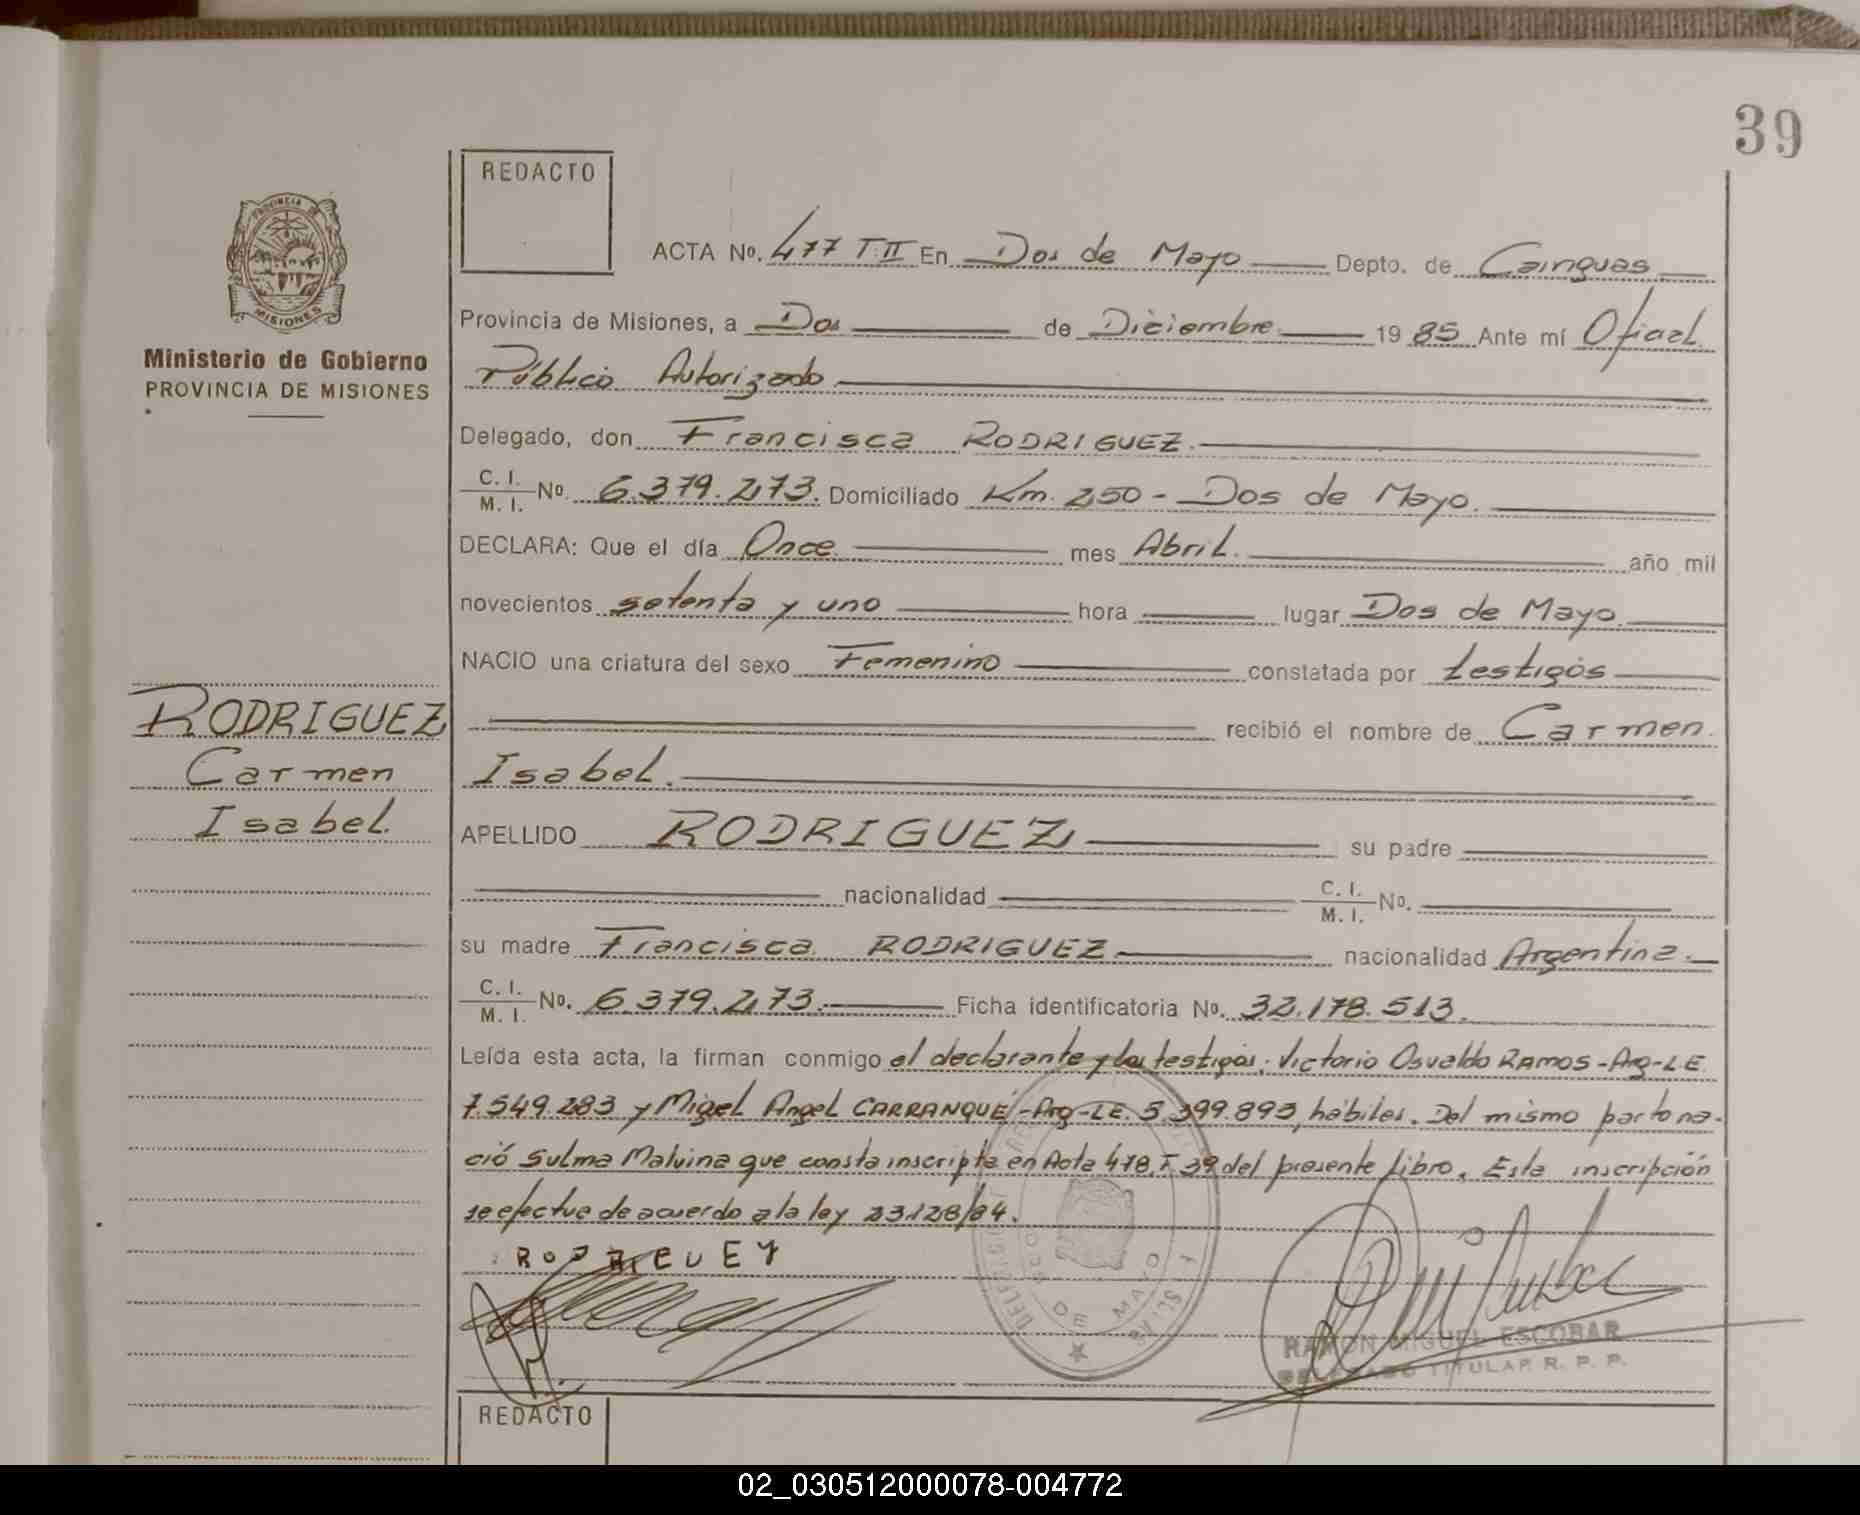 39
REDACTO
ACTA Nº. 477 T.II En Dos de Mayo Depto. de Cainguas
PROVINCIA DE
MISIONES
Provincia de Misiones, a Dos de Diciembre 1985 Ante mí Oficial
Ministerio de Gobierno
PROVINCIA DE MISIONES
Público Autorizado
Delegado, don Francisca RODRIGUEZ.
C. I. / M. I. Nº. 6.379.273. Domiciliado Km. 250 - Dos de Mayo.
DECLARA: Que el día Once mes Abril. año mil
novecientos setenta y uno hora lugar Dos de Mayo.
NACIO una criatura del sexo Femenino constatada por testigos
RODRIGUEZ
Carmen
Isabel.
recibió el nombre de Carmen
Isabel.
APELLIDO RODRIGUEZ su padre
nacionalidad C. I. / M. I. Nº.
su madre Francisca RODRIGUEZ nacionalidad Argentina.
C. I. / M. I. Nº. 6.379.273. Ficha identificatoria Nº. 32.178.513.
Leída esta acta, la firman conmigo el declarante y los testigos: Victorio Osvaldo RAMOS - Arg - L.E.
7.549.283 y Migel Angel CARRANQUE - Arg - L.E. 5.399.893, hábiles. Del mismo parto na-
ció Sulma Malvina que consta inscripta en Acta 478 F 39 del presente libro. Esta inscripción
se efectue de acuerdo a la ley 23128/84.
DOS DE MAYO
RAMON MIGUEL ESCOBAR
DELEGADO TITULAR R. P. P.
REDACTO
02_030512000078-004772